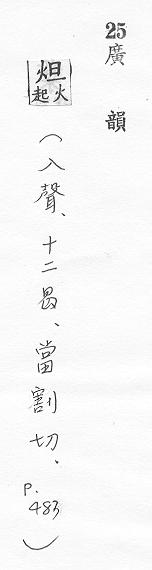 25
廣韻
炟火起（入聲、十二曷、當割切、p.483）